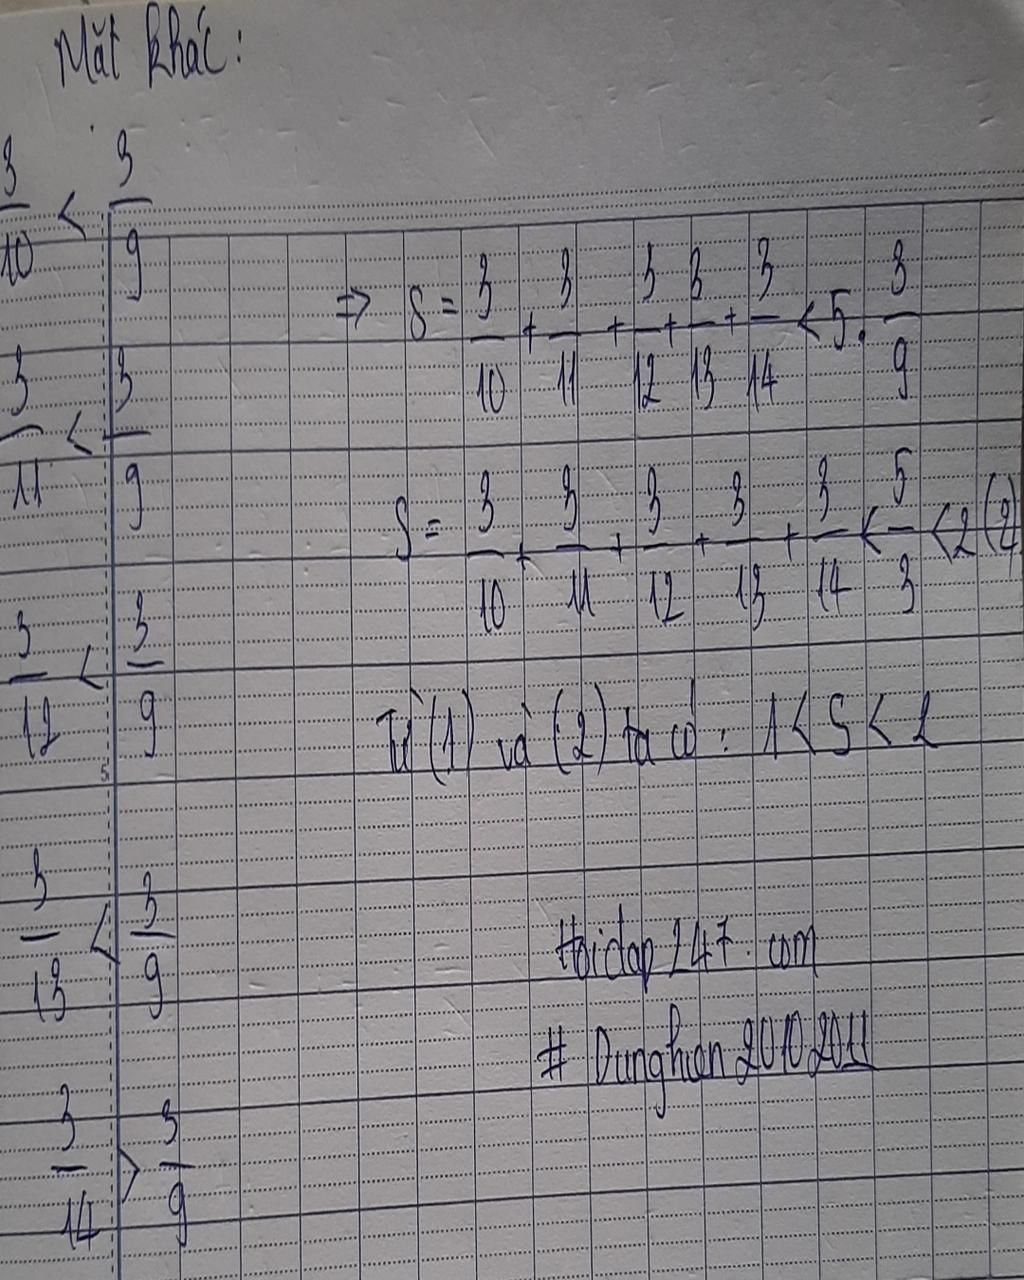 Mặt khác:
3/10 < 3/9
3/11 < 3/9
3/12 < 3/9
3/13 < 3/9
3/14 > 3/9
=> S = 3/10 + 3/11 + 3/12 + 3/13 + 3/14 < 5. 3/9
S = 3/10 + 3/11 + 3/12 + 3/13 + 3/14 < 5/3 < 2 (2)
Từ (1) và (2) ta có : 1 < S < 2
Hoidap247.com
# Dunghien20102011